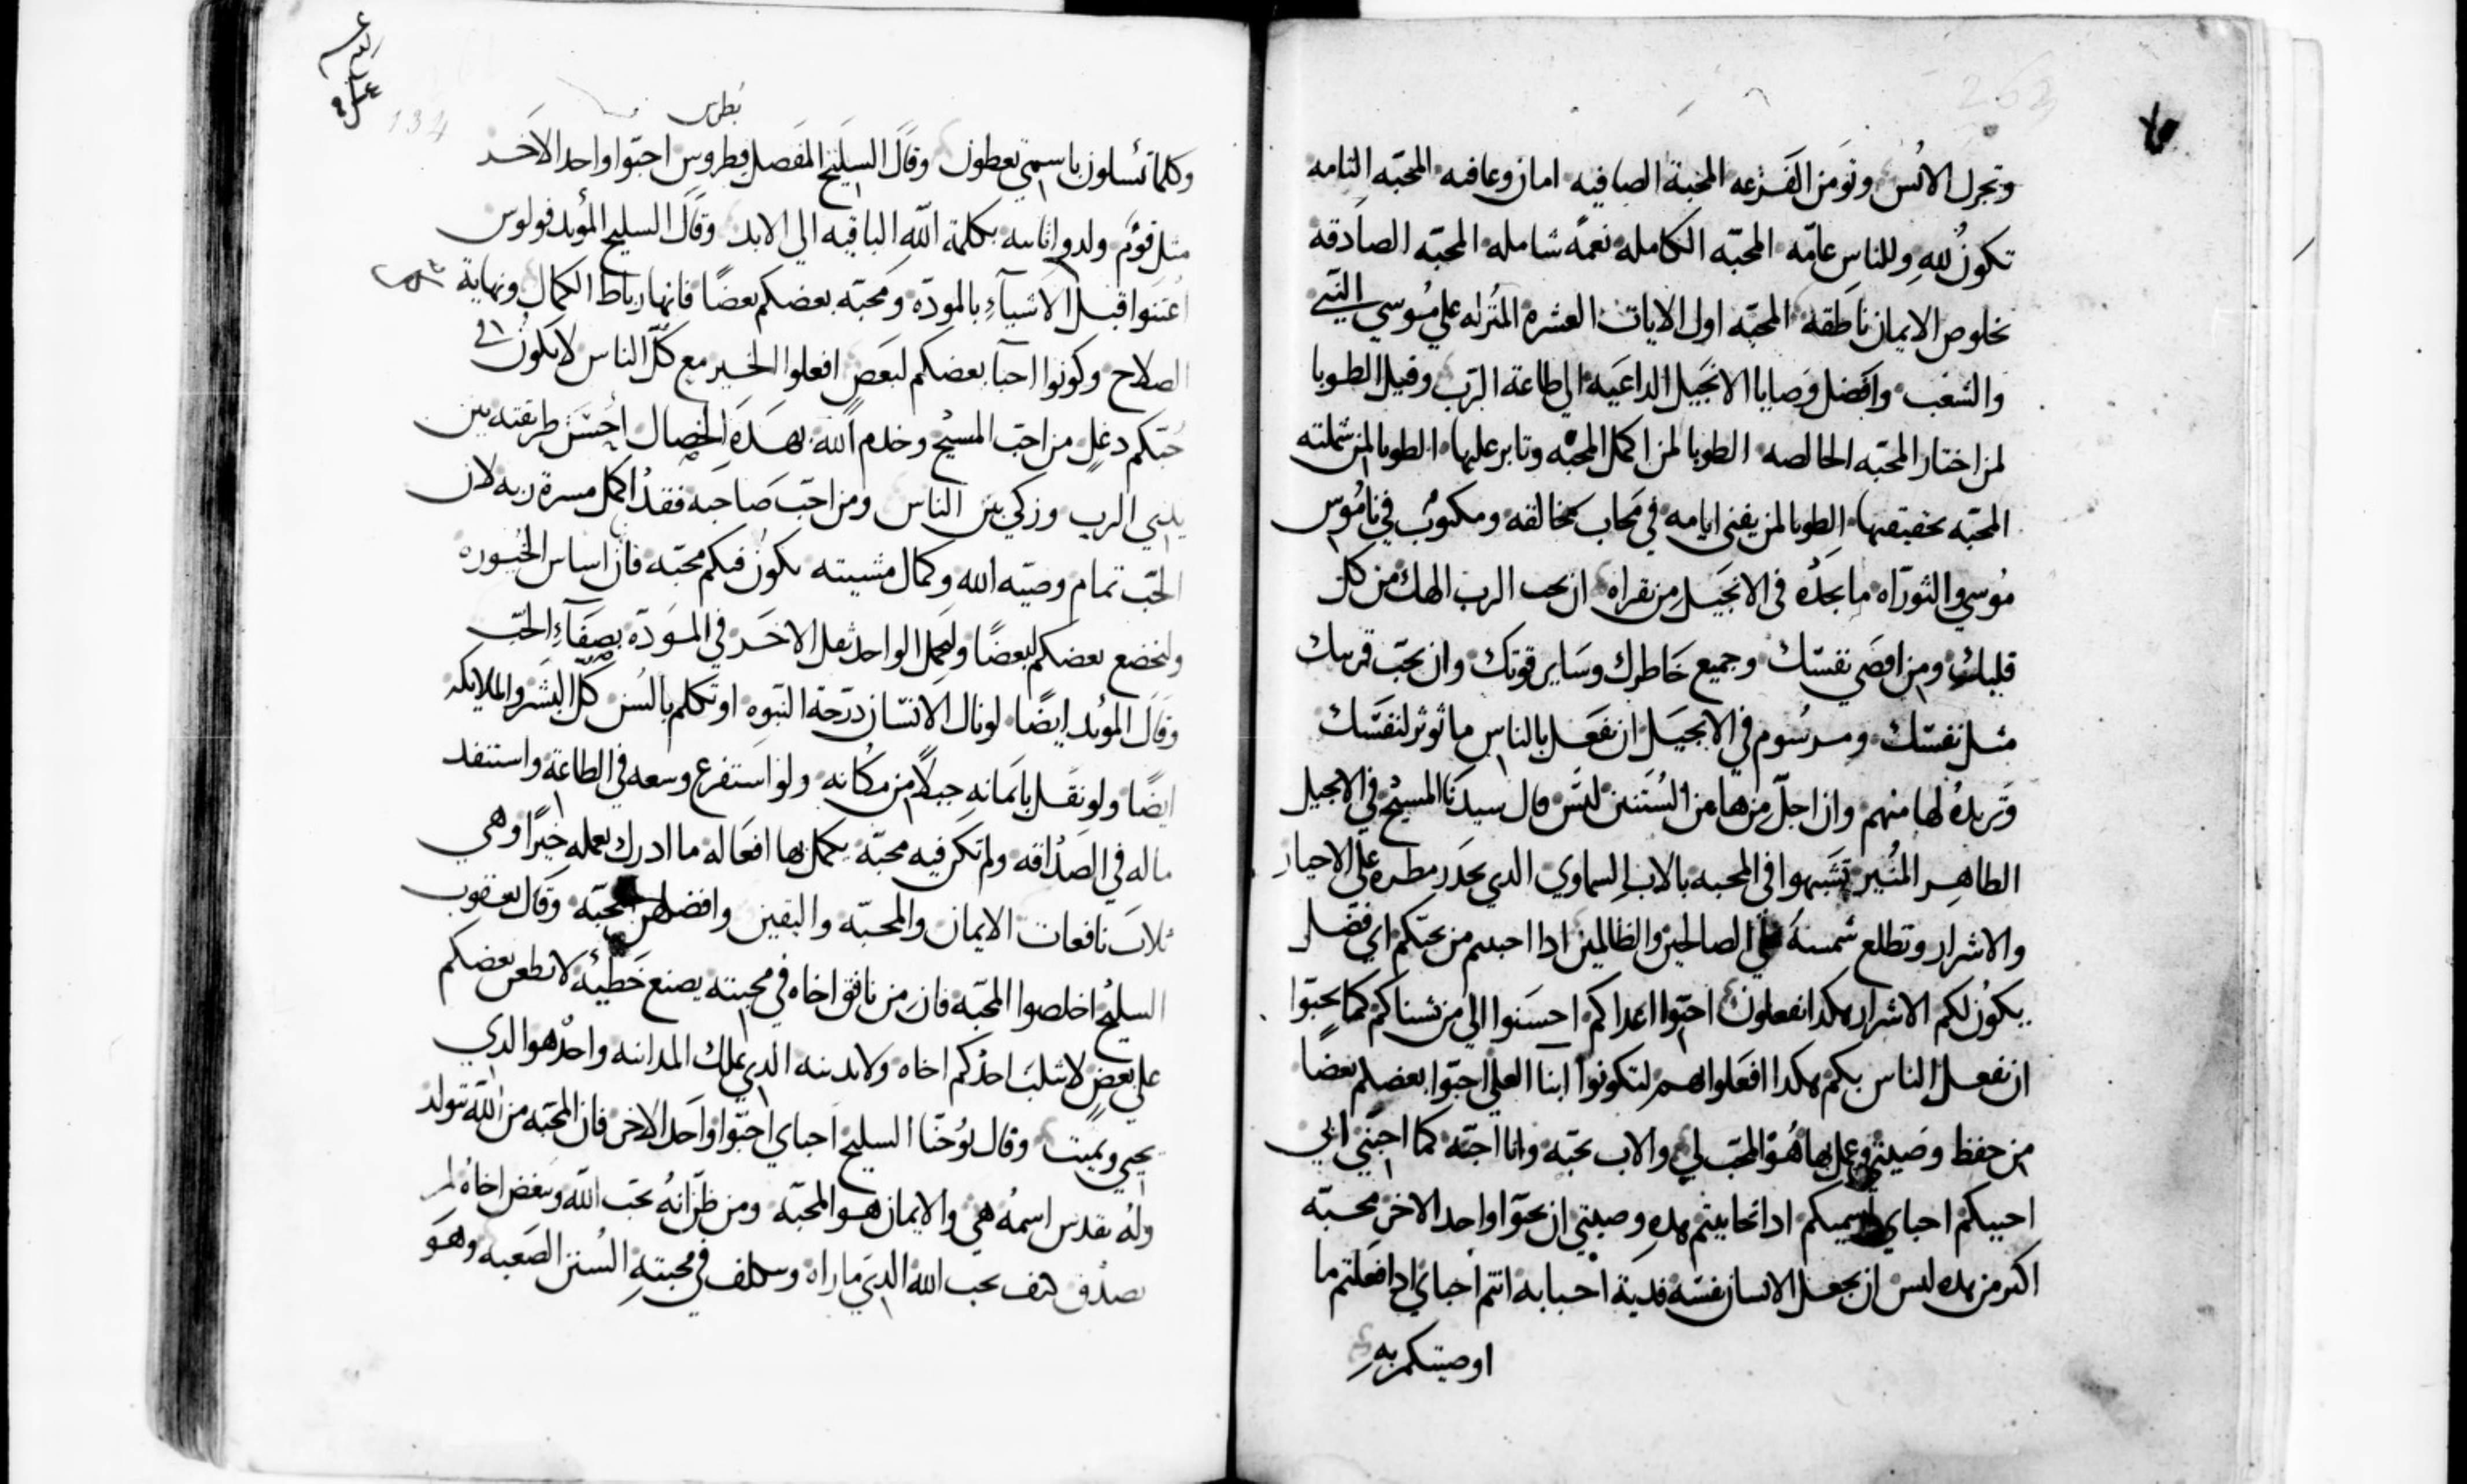 وتجزل الانس وتومن الفزعه المحبة الصافيه امان وعافيه المحبّه التامه
تكون لله وللناس عامّه المحبّه الكامله نعمة شامله المحبّه الصادقه
بخلوص الايمان ناطقه المحبّه اول الايات العشره المنزله علي موسي النبي
والشعب وافضل وصايا الانجيل الداعيه الي طاعة الرب وقيل الطوبا
لمن اختار المحبّه الخالصه الطوبا لمن اكمل المحبّه وثابر عليها الطوبا لمن شملته
المحبّه بحقيقتها الطوبا لمن يفني ايامه في محاب خالقه ومكتوب في ناموس
موسي والتوراه ما يجده في الانجيل من يقراه ان تحب الرب الهك من كل
قلبك ومن اقصي نفسك وجميع خاطرك وساير قوتك وان تحبّ قريبك
مثل نفسك ومرسوم في الانجيل ان تفعل بالناس ما توثر لنفسك
وتريده لها منهم وان اجلّ منها من السنن ليس قال سيدنا المسيح في الانجيل
الطاهر المنير تشبهوا في المحبه بالاب السماوي الدي يحدر مطره علي الاخيار
والاشرار وتطلع شمسه علي الصالحين والظالمين ادا احببتم من يحبّكم اي فضل
يكون لكم الاشرار هكدا يفعلون احبّوا اعداكم احسنوا الي من يشناكم كما تحبّوا
ان تفعل الناس بكم هكدا افعلوا بهم لتكونوا ابنا العلي احبّوا بعضكم بعضا
من حفظ وصيتي وعمل بها هو المحب لي والاب يحبّه وانا احبّه كما احبّني ابي
احببكم احباي اسميكم ادا تحاببتم هده وصيتي ان تحبّوا واحد الاخر محبّه
اكبر من هده ليس ان يجعل الانسان نفسه فدية احبابه انتم احباي ادا فعلتم ما
اوصيتكم به
بطرس
وكلما تسلون باسمي تعطون وقال السليح المفضل فطروس احبّوا واحد الاخر
مثل قوم ولدوا ثانيه بكلمة الله الباقيه الي الابد وقال السليح المؤيد فولوس
اعتنوا قبل الاشياء بالمودّه ومحبّه بعضكم بعضًا فانها رباط الكمال ونهاية
الصلاح وكونوا احبا بعضكم لبعض افعلوا الخير مع كلّ الناس لا يكون في
حبّكم دغل من احبّ المسيح وخدم الله بهده الخصال احسن طريقته بين
يدي الرب وزكي بين الناس ومن احبّ صاحبه فقد اكمل مسرة ربه لان
الحبّ تمام وصيّه الله وكمال مشيته يكون فيكم محبّه فان اساس الخيوره
وليخضع بعضكم لبعضًا وليحمل الواحد ثقل الاخر في المودّه بصفاء الحبّ
وقال المويد ايضًا لو نال الانسان درجة النبوه او تكلم بالسن كلّ البشر والملايكه
ايضًا ولو نقل بايمانه جبلاً من مكانه ولو استفرغ وسعه في الطاعة واستنفد
ماله في الصداقه ولم تكن فيه محبّة يكمل بها افعاله ما ادرك بعمله خيرًا وهي
ثلاث نافعات الايمان والمحبّه واليقين وافضلهن المحبّه وقال يعقوب
السليح اخلصوا المحبّه فان من نافق اخاه في محبته يصنع خطيئه لا يطعن بعضكم
علي بعض لا يثلب احدكم اخاه ولا يدينه الدي يملك المداينه واحد هو الدي
يحيي ويميت وقال يوحنّا السليح احباي احبّوا واحد الاخر فان المحبّه من الله تتولد
وله يقدس اسمه هي والايمان هو المحبّه ومن ظن انه يحب الله ويبغض اخاه لم
يصدق كيف يحب الله الدي ما راه في محبته السنن الصعبه وهو